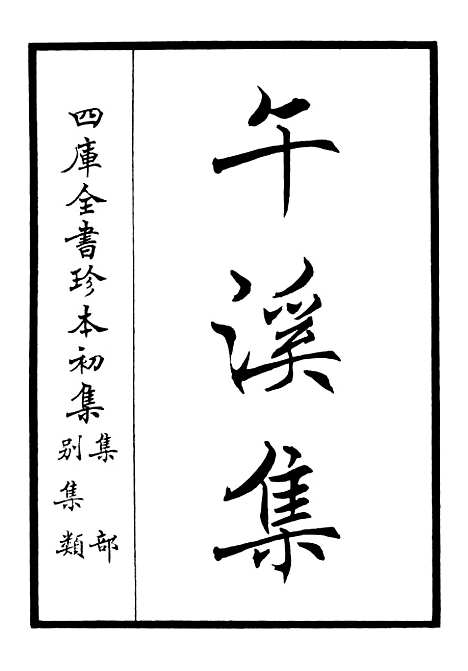 午溪集
四庫全書珍本初集
集部
別集類